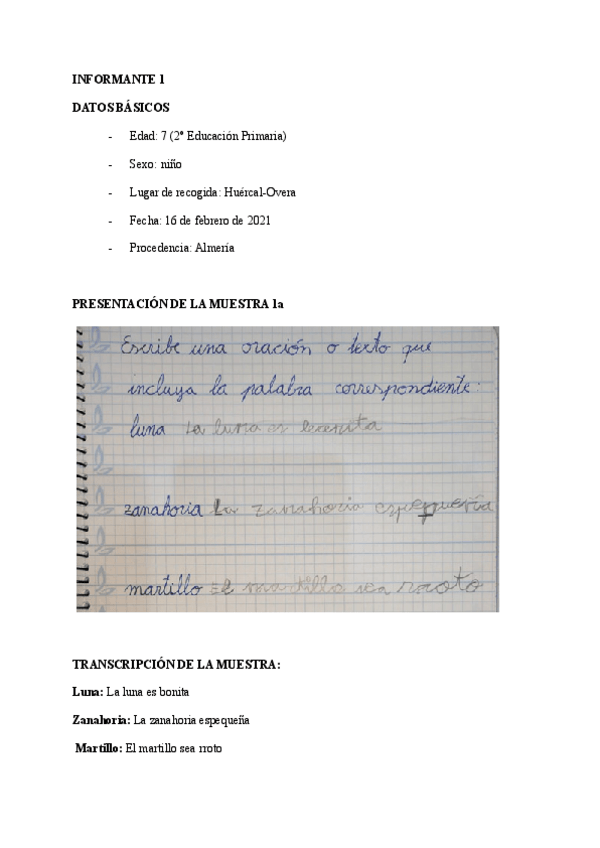 INFORMANTE 1
DATOS BÁSICOS
- Edad: 7 (2º Educación Primaria)
- Sexo: niño
- Lugar de recogida: Huércal-Overa
- Fecha: 16 de febrero de 2021
- Procedencia: Almería
PRESENTACIÓN DE LA MUESTRA 1a
Escribe una oración o texto que
incluya la palabra correspondiente:
luna La luna es
zanahoria La zanahoria espequeña
martillo El martillo sea rroto
TRANSCRIPCIÓN DE LA MUESTRA:
Luna: La luna es bonita
Zanahoria: La zanahoria espequeña
Martillo: El martillo sea rroto